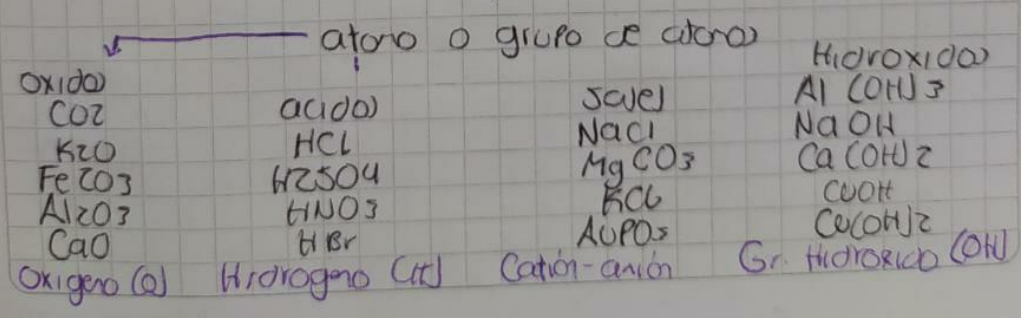 atomo o grupo de atomos
Oxidos
CO2
K2O
Fe2O3
Al2O3
CaO
Oxigeno (O)
acidos
HCl
H2SO4
HNO3
HBr
Hidrogeno (H)
Sales
NaCl
MgCO3
KCl
Catión-anión
Hidroxidos
Al(OH)3
NaOH
Ca(OH)2
CuOH
Gr. Hidroxido (OH)